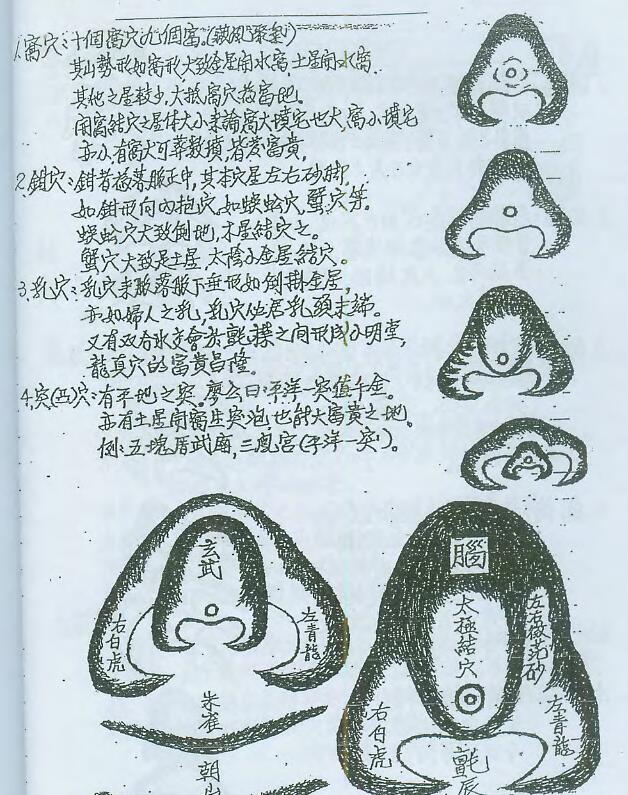 1.窩穴:十個窩穴九個富。(藏風聚氣)
其山勢形如窩形大致金星開水窩,土星開水窩
其他之星較少,大抵窩穴為富地。
開窩結穴之星体大小來論窩大墳宅也大,窩小墳宅
亦小,有窩大可葬數墳,皆發富貴,
2.鉗穴:鉗者為落脈正中,其本穴星左右砂脚
如鉗形向內抱穴,如蜈蚣穴,蟹穴等。
蜈蚣穴大致倒地,木星結穴之。
蟹穴大致是土星,太陰金星結穴。
3.乳穴:乳穴來脈落脈下垂形如倒掛金星,
亦如婦人之乳,乳穴位居乳頭末端。
又有双合水交會於氈褥之間形成小明堂,
龍真穴的富貴昌隆。
4.突(五)穴:有平地之突。廖公曰:平洋一突值千金。
亦有土星開窩生突泡,也許大富貴之地。
例:五塊厝武廟,三鳳宮(平洋一突)。
玄武
右白虎
左青龍
朱雀
朝山
腦
太極結穴
左右微茫砂
右白虎
左青龍
氈唇